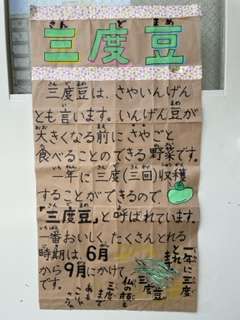 さん ど まめ
三度豆
三度豆は、さやいんげん
とも言います。いんげん豆が
大きくなる前にさやごと
食べることのできる野菜です。
一年に三度(三回)収穫
することができるので
「三度豆」と呼ばれています。
一番おいしく、たくさんとれる
時期は、6月
から9月にかけて
です。
一年に三度
三度豆
仏の顔も
三度まで